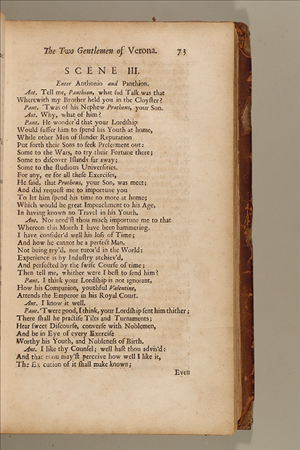 The Two Gentlemen of Verona. 73
SCENE III.
Enter Anthonio and Panthion.
Ant. Tell me, Panthion, what sad Talk was that
Wherewith my Brother held you in the Cloyster?
Pant. 'Twas of his Nephew Protheus, your Son.
Ant. Why, what of him?
Pant. He wonder'd that your Lordship
Would suffer him to spend his Youth at home,
While other Men of slender Reputation
Put forth their Sons to seek Preferment out:
Some to the Wars, to try their Fortune there;
Some to discover Islands far away;
Some to the studious Universities.
For any, or for all these Exercises,
He said, that Protheus, your Son, was meet;
And did request me to importune you
To let him spend his time no more at home;
Which would be great Impeachment to his Age,
In having known no Travel in his Youth.
Ant. Nor need'st thou much importune me to that
Whereon this Month I have been hammering.
I have consider'd well his loss of Time;
And how he cannot be a perfect Man,
Not being try'd, nor tutor'd in the World:
Experience is by Industry atchiev'd,
And perfected by the swift Course of time;
Then tell me, whither were I best to send him?
Pant. I think your Lordship is not ignorant,
How his Companion, youthful Valentine,
Attends the Emperor in his Royal Court.
Ant. I know it well.
Pant. 'Twere good, I think, your Lordship sent him thither;
There shall he practise Tilts and Turnaments;
Hear sweet Discourse, converse with Noblemen,
And be in Eye of every Exercise
Worthy his Youth, and Nobleness of Birth.
Ant. I like thy Counsel; well hast thou advis'd:
And that thou may'st perceive how well I like it,
The Execution of it shall make known;
Even